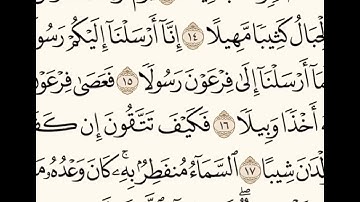 ٱلۡجِبَالُ كَثِيبٗا مَّهِيلًا ١٤ إِنَّآ أَرۡسَلۡنَآ إِلَيۡكُمۡ رَسُو
مَآ أَرۡسَلۡنَآ إِلَىٰ فِرۡعَوۡنَ رَسُولٗا ١٥ فَعَصَىٰ فِرۡعَوۡ
أَخۡذٗا وَبِيلٗا ١٦ فَكَيۡفَ تَتَّقُونَ إِن كَفَ
لۡدَٰنَ شِيبًا ١٧ ٱلسَّمَآءُ مُنفَطِرُۢ بِهِۦۚ كَانَ وَعۡدُهُۥ مَ